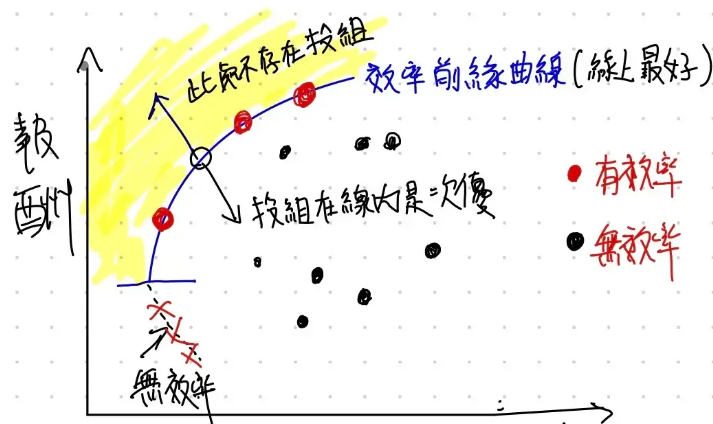 此處不存在投組
效率前緣曲線(線上最好)
報酬
投組在線內是次優
有效率
無效率
無效率